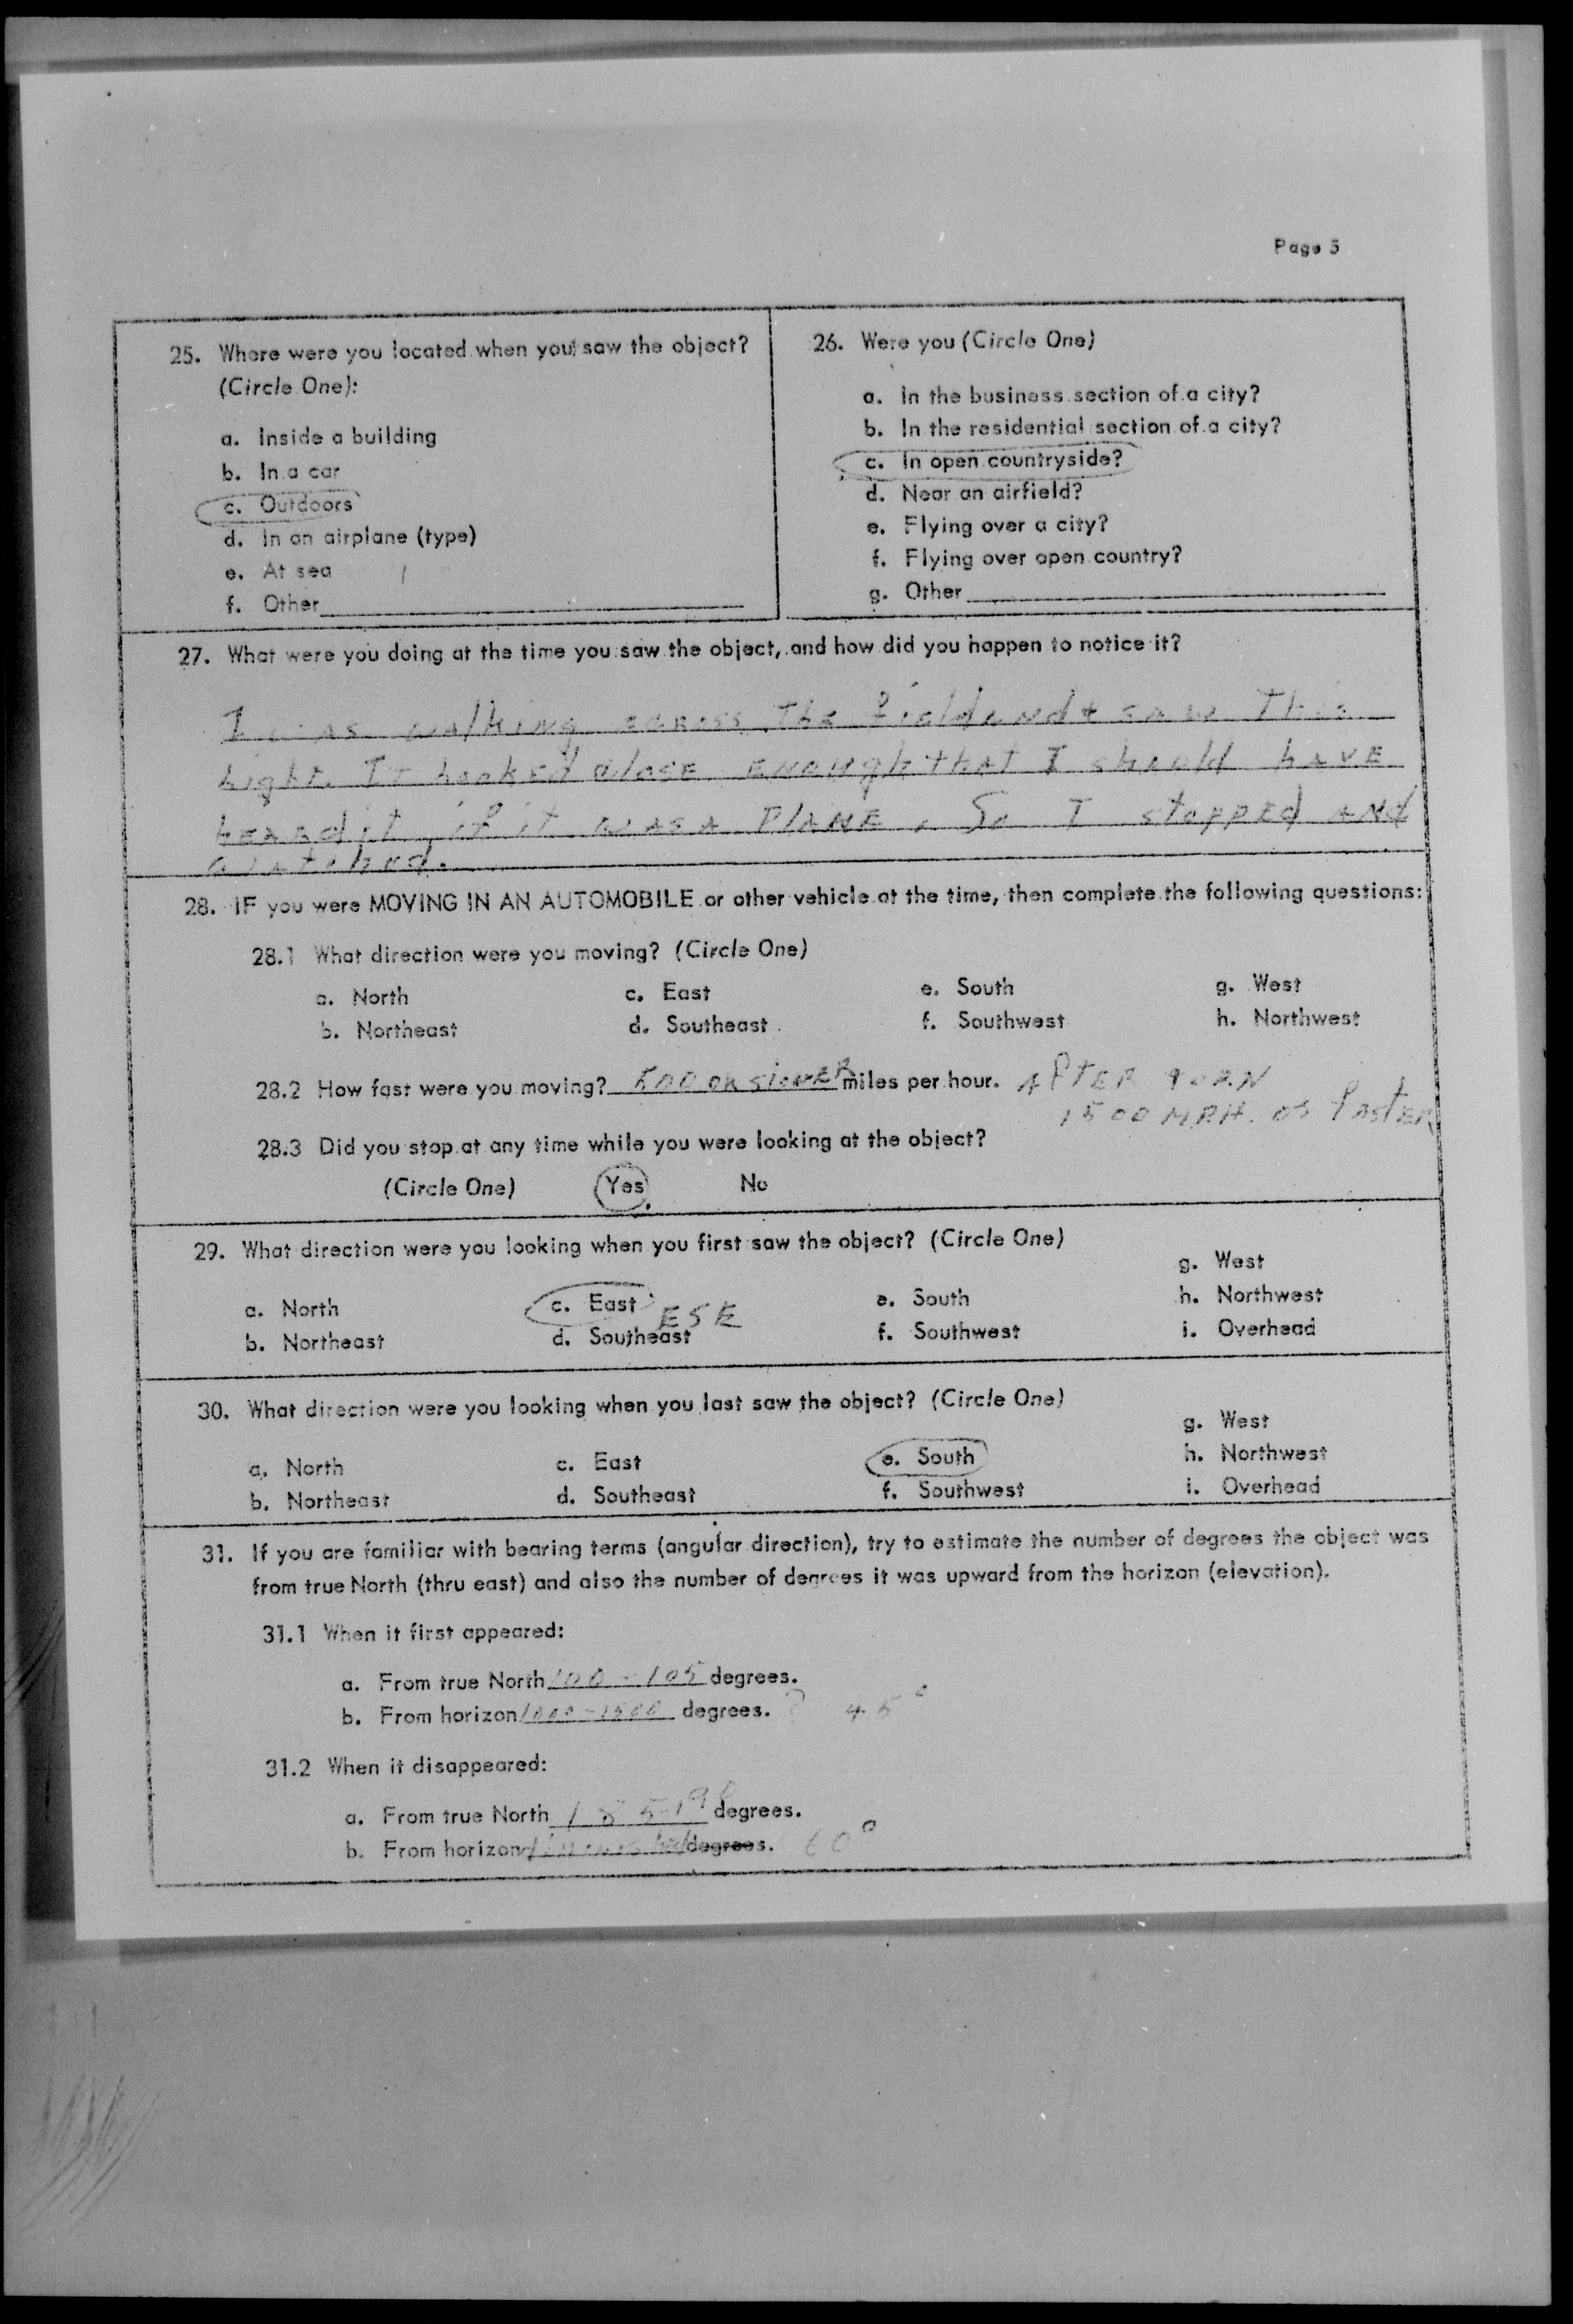 Page 5
25. Where were you located when you saw the object?
(Circle One):
a. Inside a building
b. In a car
c. Outdoors
d. In an airplane (type)
e. At sea
f. Other
26. Were you (Circle One)
a. In the business section of a city?
b. In the residential section of a city?
c. In open countryside?
d. Near an airfield?
e. Flying over a city?
f. Flying over open country?
g. Other
27. What were you doing at the time you saw the object, and how did you happen to notice it?
I was walking across the field and saw This
Light. It Looked close ENOUGH that I should HAVE
heard it if it WAS A PLANE. So I stopped AND
watched.
28. IF you were MOVING IN AN AUTOMOBILE or other vehicle at the time, then complete the following questions:
28.1 What direction were you moving? (Circle One)
a. North c. East e. South g. West
b. Northeast d. Southeast f. Southwest h. Northwest
28.2 How fast were you moving? 500 OR slower miles per hour. AFTER TURN
1500 MPH. or faster
28.3 Did you stop at any time while you were looking at the object?
(Circle One) Yes No
29. What direction were you looking when you first saw the object? (Circle One)
g. West
a. North c. East ESE e. South h. Northwest
b. Northeast d. Southeast f. Southwest i. Overhead
30. What direction were you looking when you last saw the object? (Circle One)
g. West
a. North c. East e. South h. Northwest
b. Northeast d. Southeast f. Southwest i. Overhead
31. If you are familiar with bearing terms (angular direction), try to estimate the number of degrees the object was
from true North (thru east) and also the number of degrees it was upward from the horizon (elevation).
31.1 When it first appeared:
a. From true North 100 - 105 degrees.
b. From horizon 1000 - 1500 degrees. ? 45°
31.2 When it disappeared:
a. From true North 185-190 degrees.
b. From horizon degrees. 60°